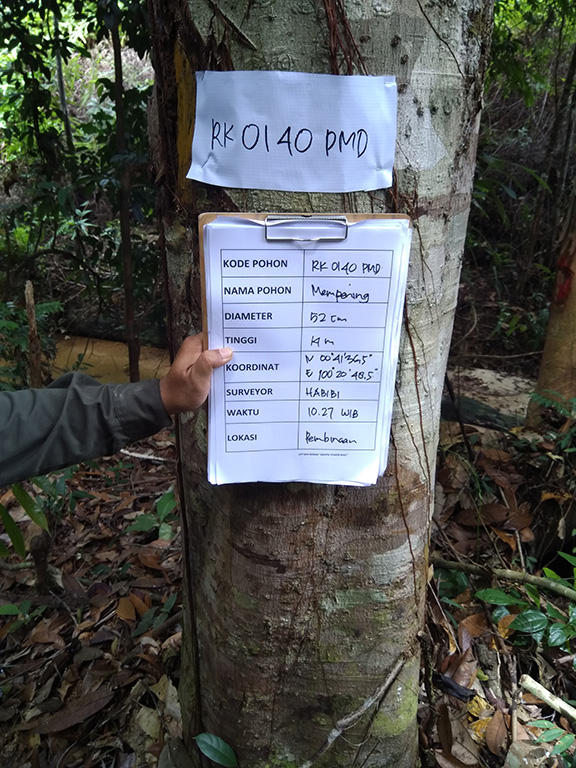 RK 0140 PMD
KODE POHON RK 0140 PMD
NAMA POHON Mempening
DIAMETER 52 cm
TINGGI 14 m
KOORDINAT N 00°41'36.5"
E 100°20'48.5"
SURVEYOR HABIBI
WAKTU 10.27 WIB
LOKASI Pembinaan